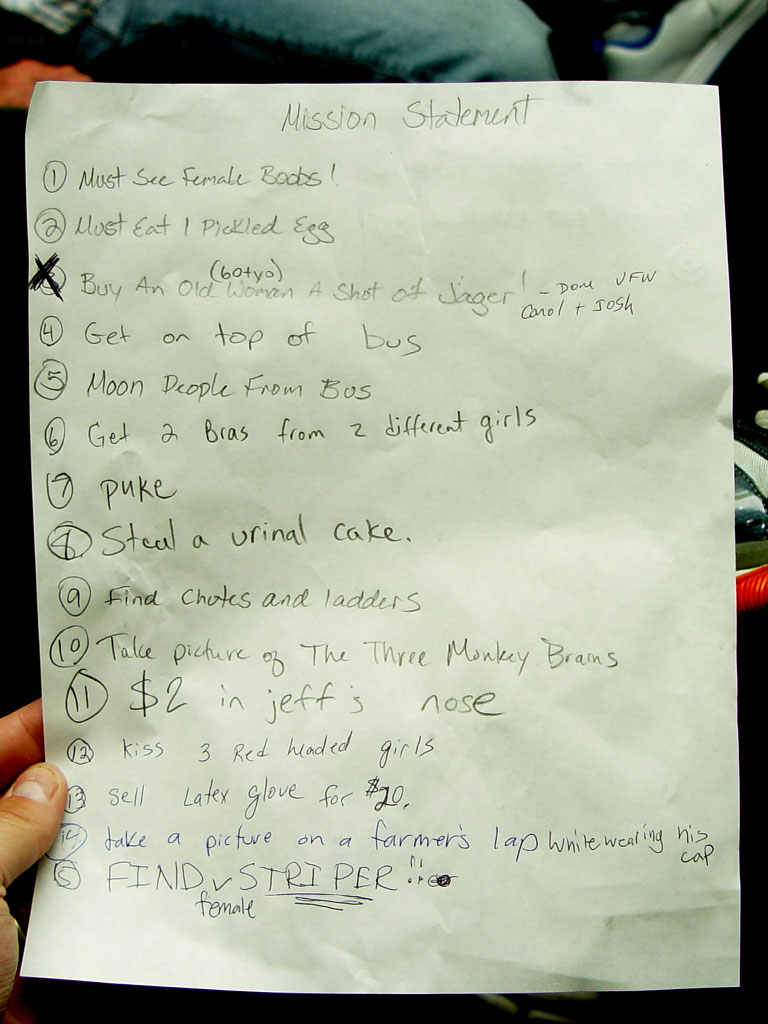 Mission Statement
① Must See Female Boobs!
② Must Eat 1 Pickled Egg
(60+yo)
Buy An Old Woman A Shot of Jager! - Done VFW
Carol + Josh
④ Get on top of bus
⑤ Moon People From Bus
⑥ Get 2 Bras from 2 different girls
⑦ puke
⑧ Steal a urinal cake.
⑨ Find chutes and ladders
⑩ Take picture of The Three Monkey Brains
⑪ $2 in jeff's nose
⑫ kiss 3 Red headed girls
⑬ sell Latex glove for $20.
⑭ take a picture on a farmer's lap while wearing his
cap
FIND STRIPER
female